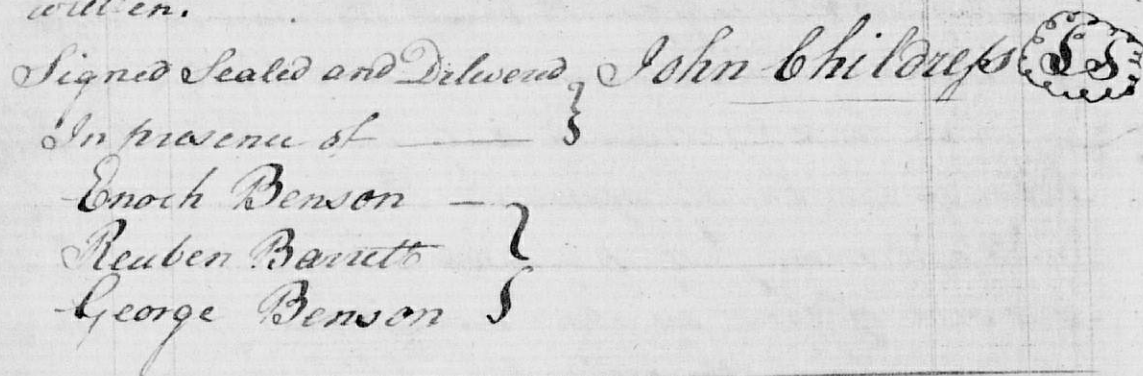 written.
Signed Sealed and Delivered } John Childress LS
In presence of — }
Enoch Benson — }
Reuben Barrett }
George Benson }